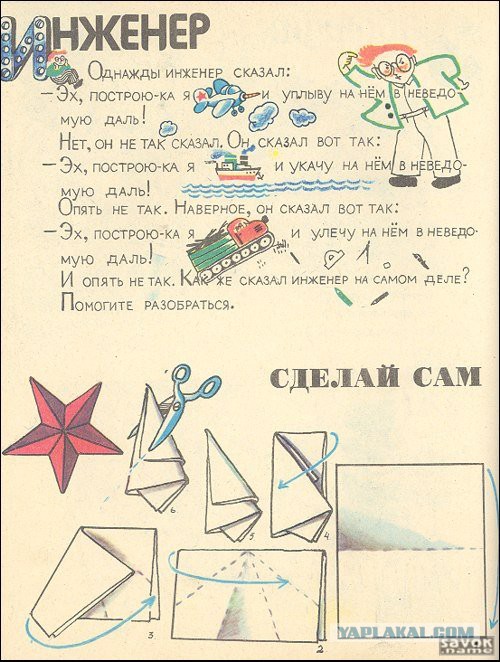 Инженер
Однажды инженер сказал:
— Эх, построю-ка я и уплыву на нём в неведо-
мую даль!
Нет, он не так сказал. Он сказал вот так:
— Эх, построю-ка я и укачу на нём в неведо-
мую даль!
Опять не так. Наверное, он сказал вот так:
— Эх, построю-ка я и улечу на нём в неведо-
мую даль!
И опять не так. Как же сказал инженер на самом деле?
Помогите разобраться.
СДЕЛАЙ САМ
6
5
4
3
2
YAPLAKAL.COM
savok
.name